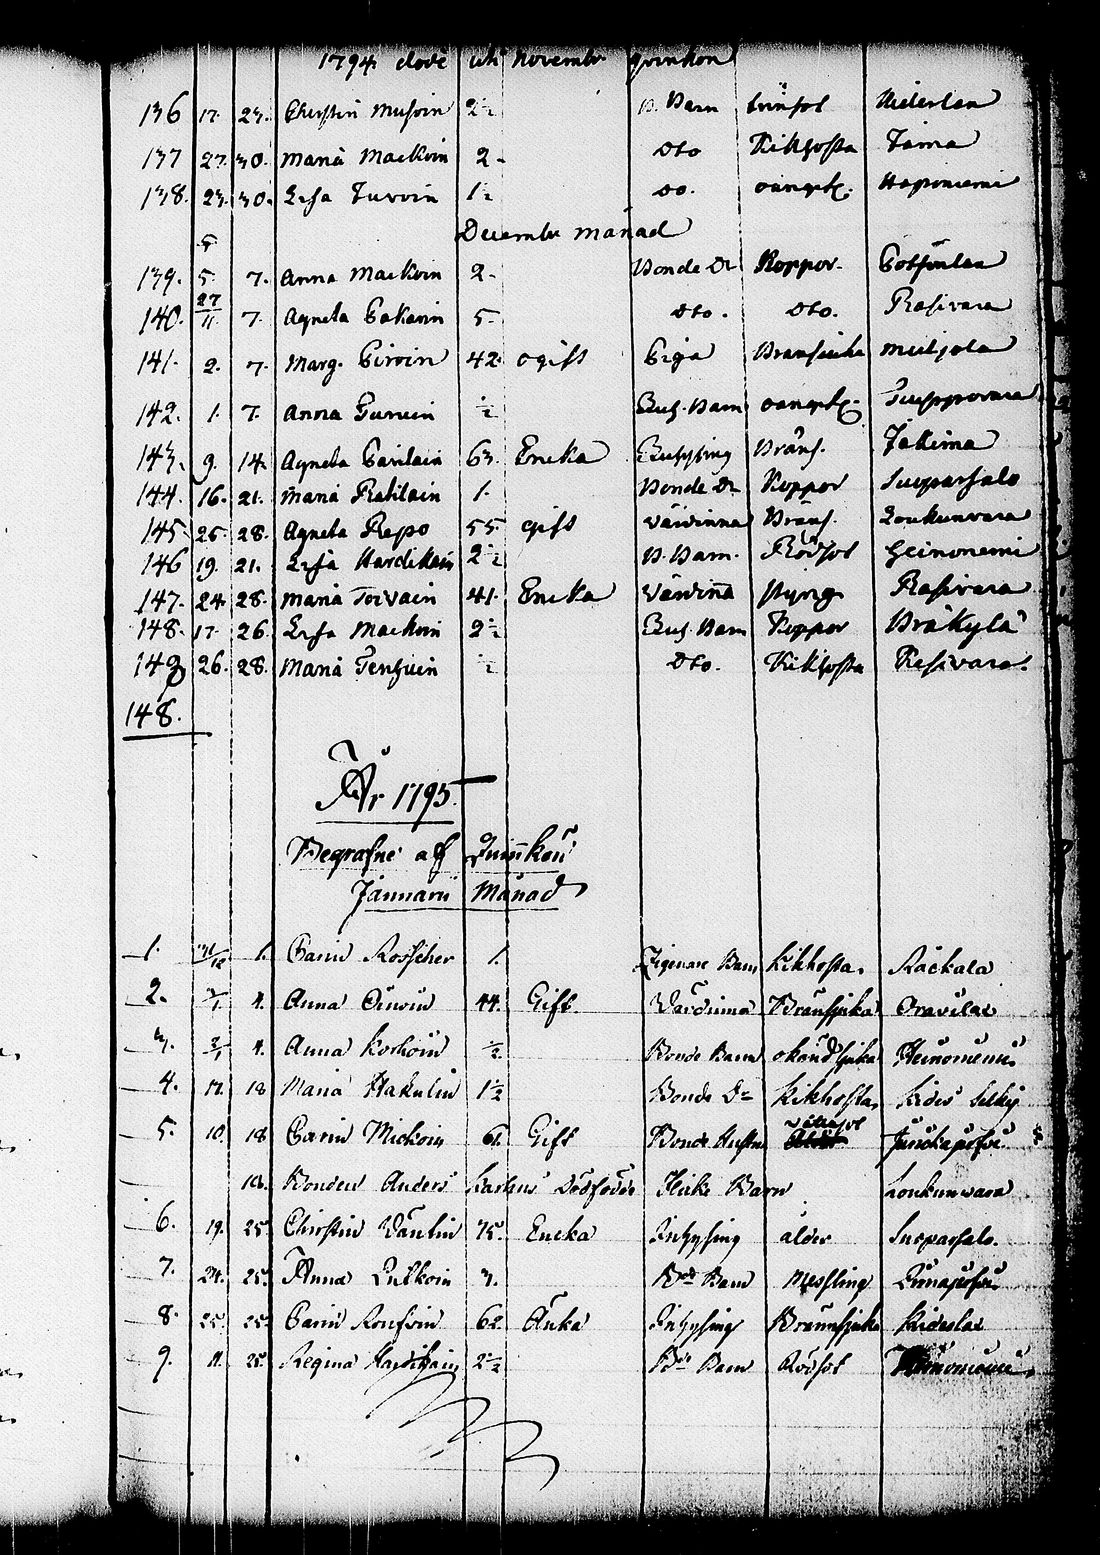 1794 döde uti Novembr qvinkon
136 17. 23. Cherstin Musoin 2½ B. Barn bröstsot Niderlax
137 27. 30. Maria Mackoin 2. Dto Kikhosta Jama
138. 23. 30. Lisa Turoin 1½ Do. oangifv. Haponiemi
Decembr månad
139. 5. 7. Anna Mackoin 2. Bonde Dr Koppor.
140. 27/11 7. Agneta Pakarin 5. Dto. Dto. Rasivara
141. 2. 7. Marg. Hirvoin 42. ogift Piga Bränsiuka
142. 1. 7. Anna Turuin ½ Barn oangifv.
143. 9. 14. Agneta 63. Encka Inhysing Bräns. Jakima
144. 16. 21. Maria 1. Bonde Dr Koppor Suoparsalo
145. 25. 28. Agneta Repo 55. gift värdinna Bräns. Loukunvara
146 19. 21. Lisa Hardikain 2½ B. Barn. Rödsot Heinonemi
147. 24. 28. Maria Toivain 41. Encka värdiña Rasivara
148. 17. 26. Lisa Mackoin 2½ Barn Koppor Bräkylä
149 26. 28. Maria ½ Dto. Kikhosta Rasivara.
148.
År 1795
Begrafne af Quinkön
Januarii Månad
1. 31/12 1. Carin Rosscher 1. Zigenare Barn Kikhosta. Räckala
2. 2/1 4. Anna 44. Gift. Värdinna Bränsjuka Oravilax
3. 2/1 4. Anna Korhoin ½ Bonde Barn okändsjuka Heinoniemi.
4. 17. 18 Maria Hakulin 1½ Bonde Dr Kikhosta, Kides Selkij
5. 10. 18 Carin Mickoin 61. Gift Bonde Hustru
18. Bonden Anders Karhus Dödfödde Flicke Barn Loukunwara
6. 19. 25. Chirstin Väntin 75. Encka Inhysing ålder Suoparsalo.
7. 24. 25. Anna Putkoin 3. Bde Barn Messling
8. 25. 25. Carin 62. Änka Inhysing Brännsjuka Kideslax
9. 11. 25. Regina 2½ Bde Barn Rödsot